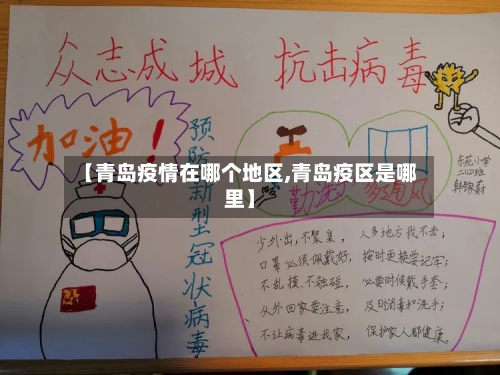 众志成城 抗击病毒
加油！
预防新型冠状病毒
勤洗
多通风
东苑小学
【青岛疫情在哪个地区,青岛疫区是哪
里】
少外出,不聚集,人多地方我不去;
口罩必须佩戴好,按时更换要记牢;
不乱摸、不触碰,必要时候戴手套;
从外回家要注意,及时消毒和洗手;
不让病毒进我家,保护家人都健康。